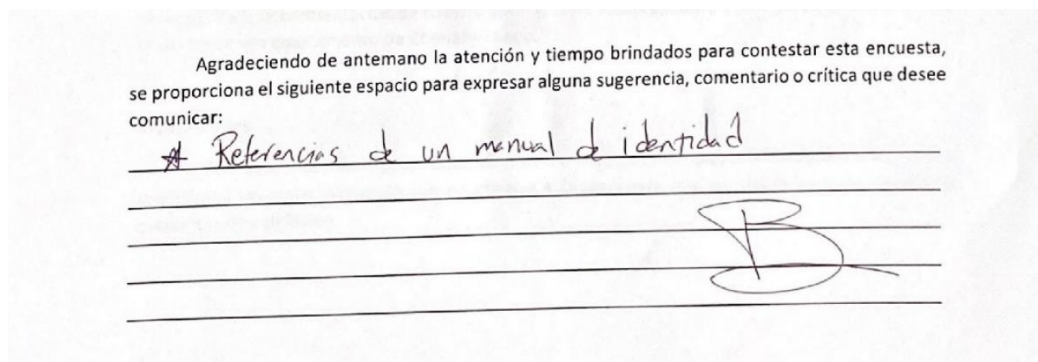 Agradeciendo de antemano la atención y tiempo brindados para contestar esta encuesta,
se proporciona el siguiente espacio para expresar alguna sugerencia, comentario o crítica que desee
comunicar:
Referencias de un manual de identidad
B